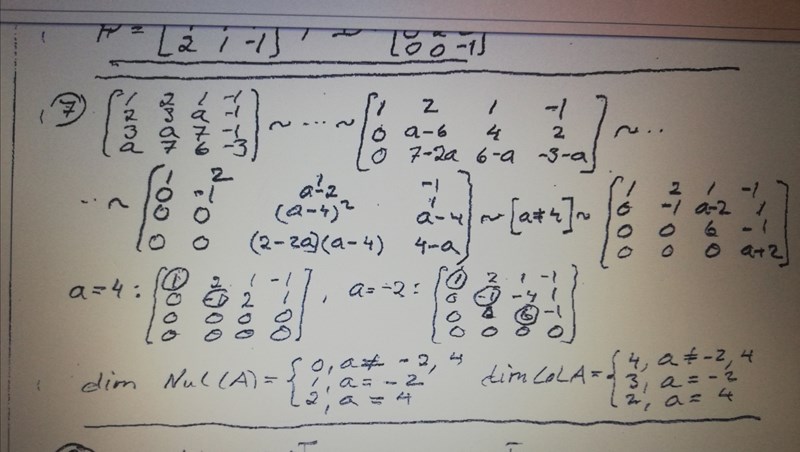 2 1 -1] , [0 0 -1]
7) [1 2 1 -1; 2 3 a -1; 3 a 7 -1; a 7 6 -3] ~ ... ~ [1 2 1 -1; 0 a-6 4 2; 0 7-2a 6-a -3-a] ~ ..
.. ~ [1 2 1 -1; 0 -1 a-2 1; 0 0 (a-4)² a-4; 0 0 (2-2a)(a-4) 4-a] ~ [a≠4] ~ [1 2 1 -1; 0 -1 a-2 1; 0 0 6 -1; 0 0 0 a+2]
a=4: [1 2 1 -1; 0 -1 2 1; 0 0 0 0; 0 0 0 0], a=-2: [1 2 1 -1; 0 -1 -4 1; 0 0 6 -1; 0 0 0 0]
dim Nul(A) = {0, a≠ -2, 4; 1, a = -2; 2, a = 4 dim Col A = {4, a≠-2, 4; 3, a = -2; 2, a = 4